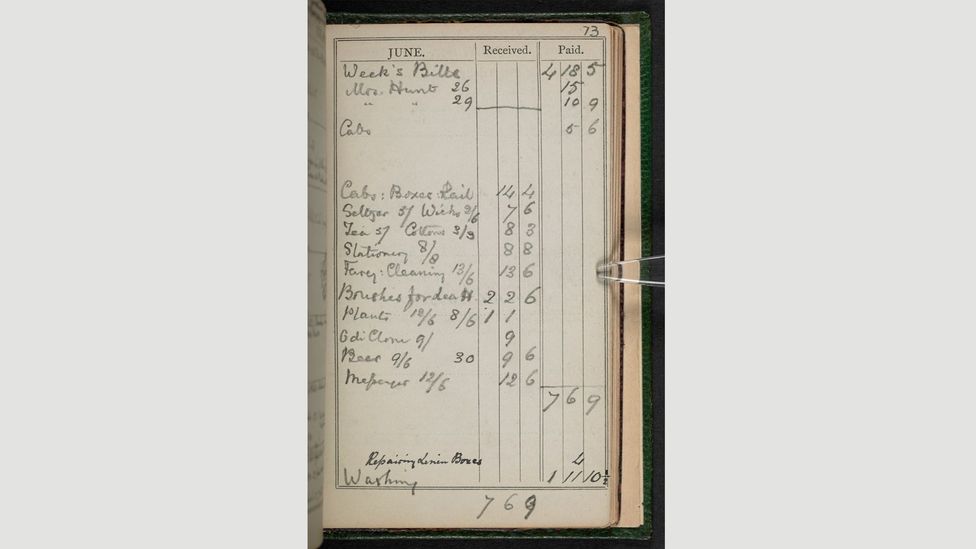 73
JUNE. Received. Paid.
Week's Bills 4 18 5
Mrs. Hunt 26 15
" " 29 10 9
Cabs 5 6
Cabs: Boxes Rail 14 4
Seltzer 5/ Wicks 2/6 7 6
Tea 5/ Cottons 3/3 8 3
Stationery 8/8 8 8
Cleaning 13/6 13 6
Brushes for 2 2 6
Plants 12/6 8/6 1 1
9/ 9
Beer 9/6 30 9 6
Messenger 12/6 12 6
7 6 9
Repairing Linen Boxes 4
Washing 1 11 10½
7 6 9